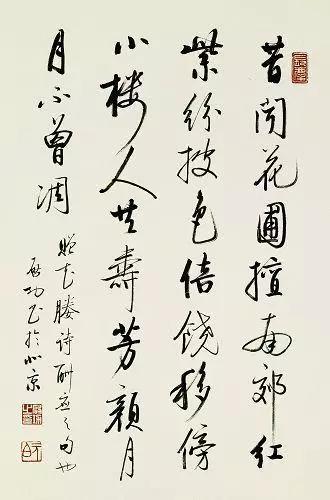 昔闻花圃擅南郊红
紫纷披色倍饶移傍
小楼人共壽芳颜月
月不曾凋
花媵诗酬应之句也
启功书于北京